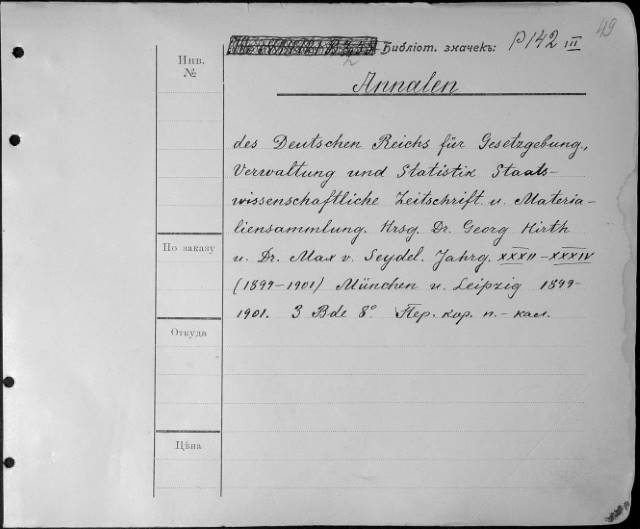 49
Библіот. значекъ: P142 III
Инв.
№
Annalen
des Deutschen Reichs für Gesetzgebung,
Verwaltung und Statistik Staats-
wissenschaftliche Zeitschrift u. Materia-
liensammlung. Hrsg. Dr. Georg Hirth
u. Dr. Max v. Seydel. Jahrg. XXXII-XXXIV
(1899-1901) München u. Leipzig 1899-
1901. 3 Bde 8°. Пер. кор. п.-кал.
По заказу
Откуда
Цѣна